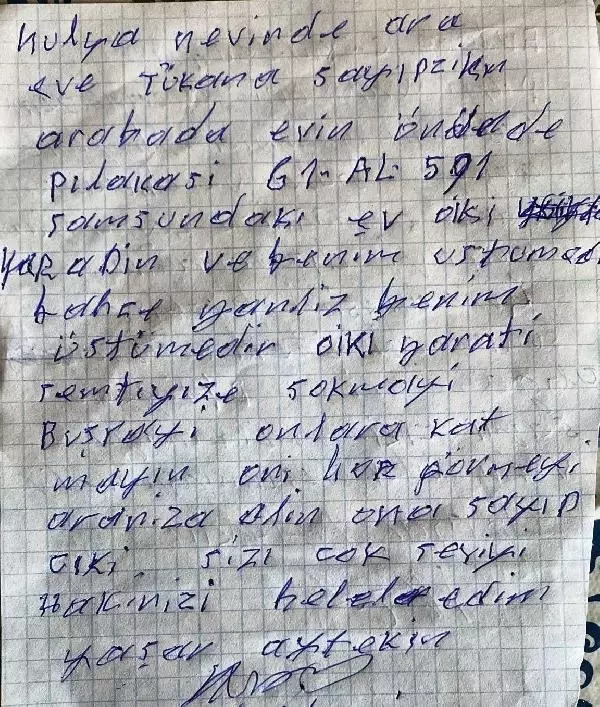 hulya nevinde ara
eve Tükana sayıpzikn
arabada evin önüdede
pılakasi 61-AL-591
samsundakı ev oiki
yarabin ve benim ustumed
bahse yanliz benim
üstümedir oiki yarati
semtiyize sokmayi
Buşrayi onlara kat
mayin oni hor görmeyi
araniza alin ona sayıp
ciki sizi cok seviyi
Hakinizi helel edim
yaşar aytekin